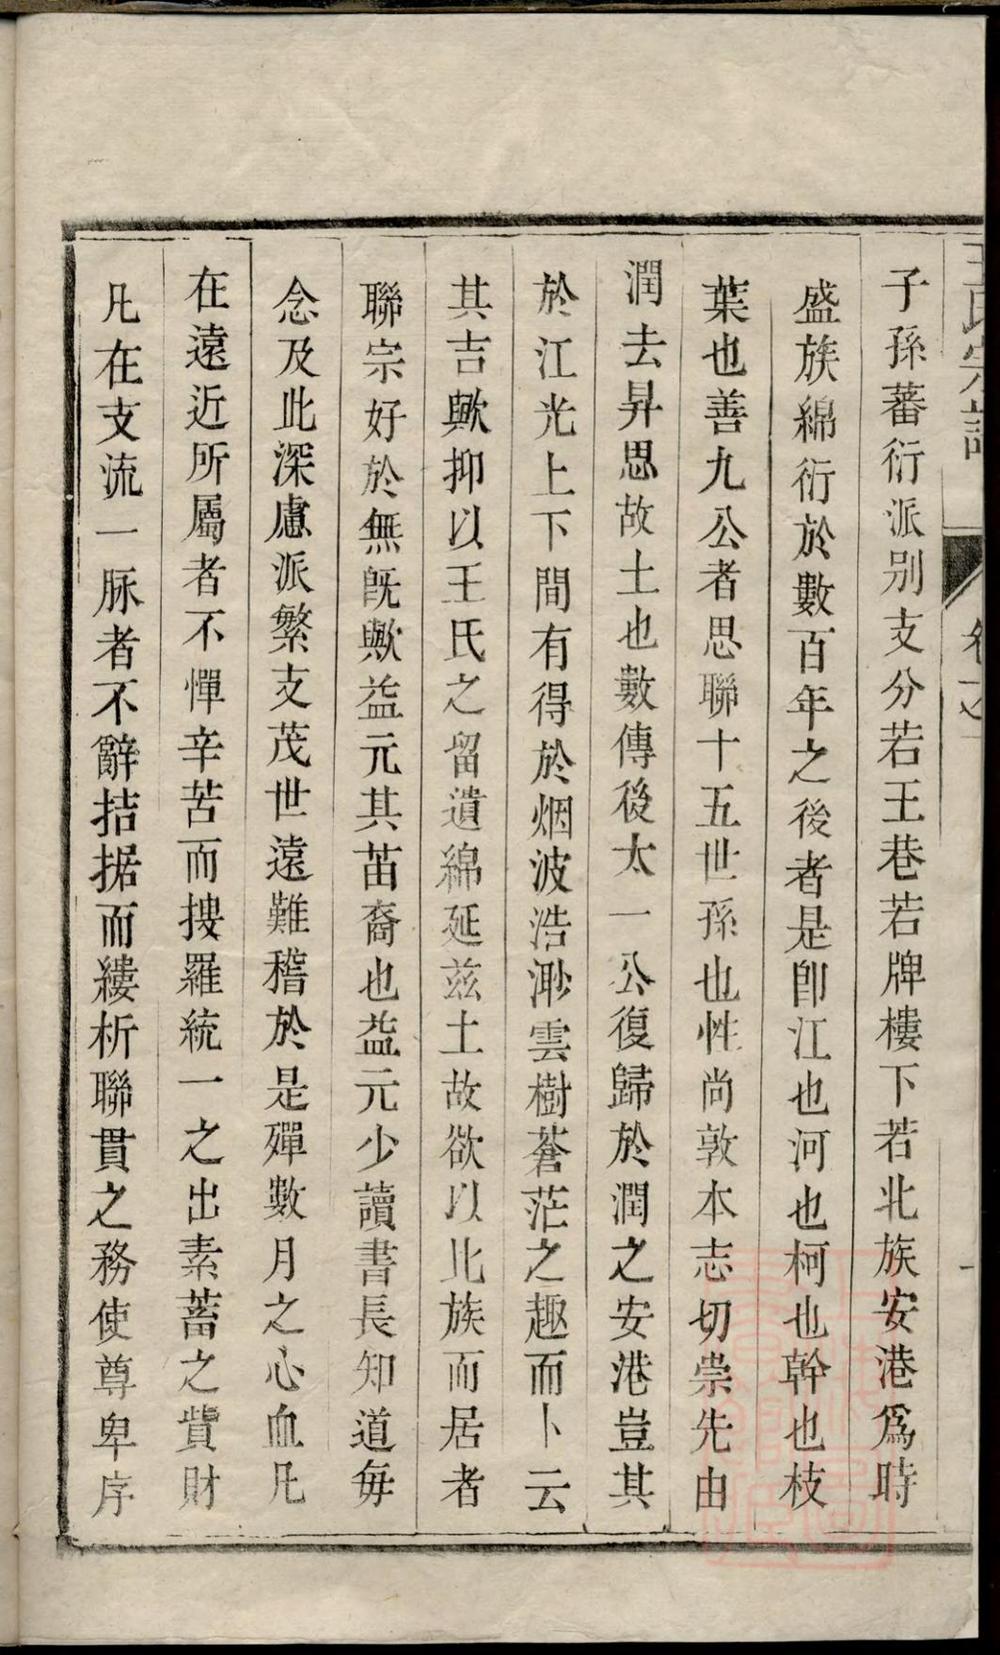 王氏宗譜 卷之一
子孫蕃衍派別支分若王巷若牌樓下若北族安港爲時
盛族綿衍於數百年之後者是卽江也河也柯也幹也枝
葉也善九公者思聯十五世孫也性尚敦本志切崇先由
潤去昇思故土也數傳後太一公復歸於潤之安港豈其
於江光上下間有得於烟波浩渺雲樹蒼茫之趣而卜云
其吉歟抑以王氏之留遺綿延兹土故欲以北族而居者
聯宗好於無旣歟益元其苗裔也益元少讀書長知道每
念及此深慮派繁支茂世遠難稽於是殫數月之心血凡
在遠近所屬者不憚辛苦而搜羅統一之出素蓄之貲財
凡在支流一脉者不辭拮据而縷析聯貫之務使尊卑序